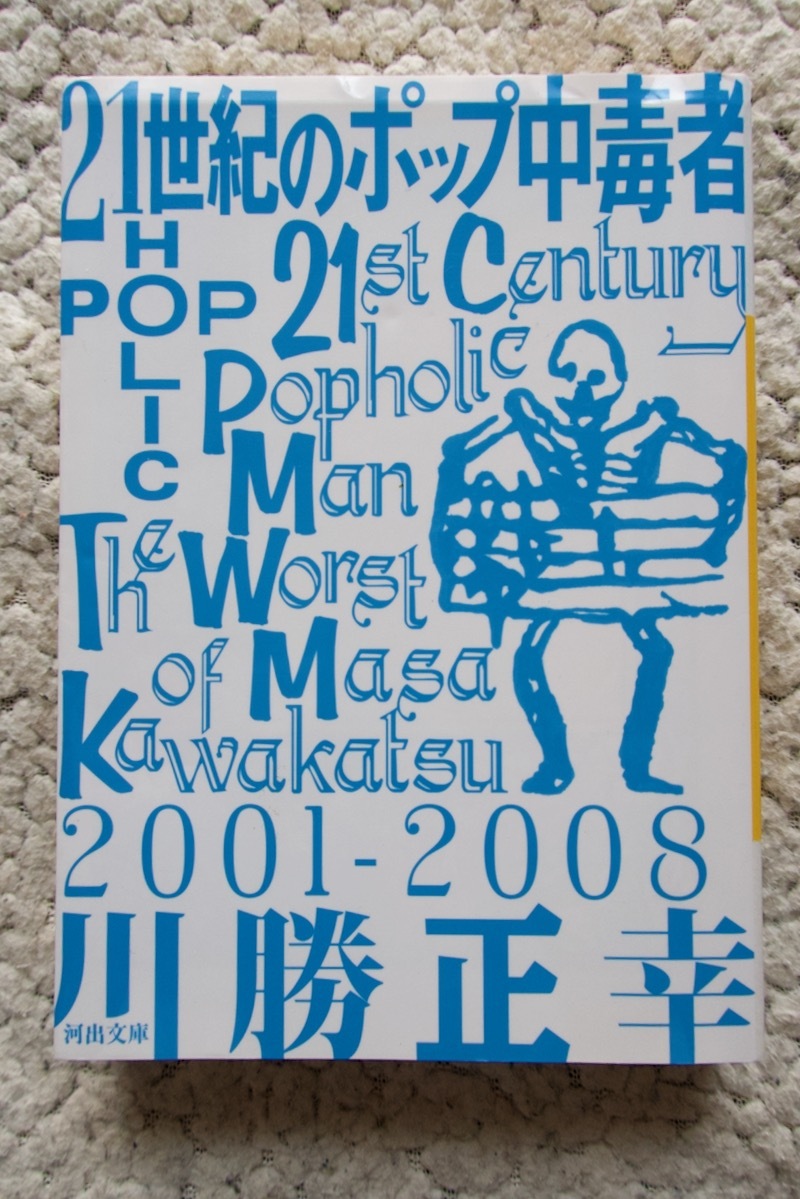 21世紀のポップ中毒者
POPHOLIC
21st Century
Popholic
Man
The Worst
of Masa
Kawakatsu
2001-2008
川勝正幸
河出文庫